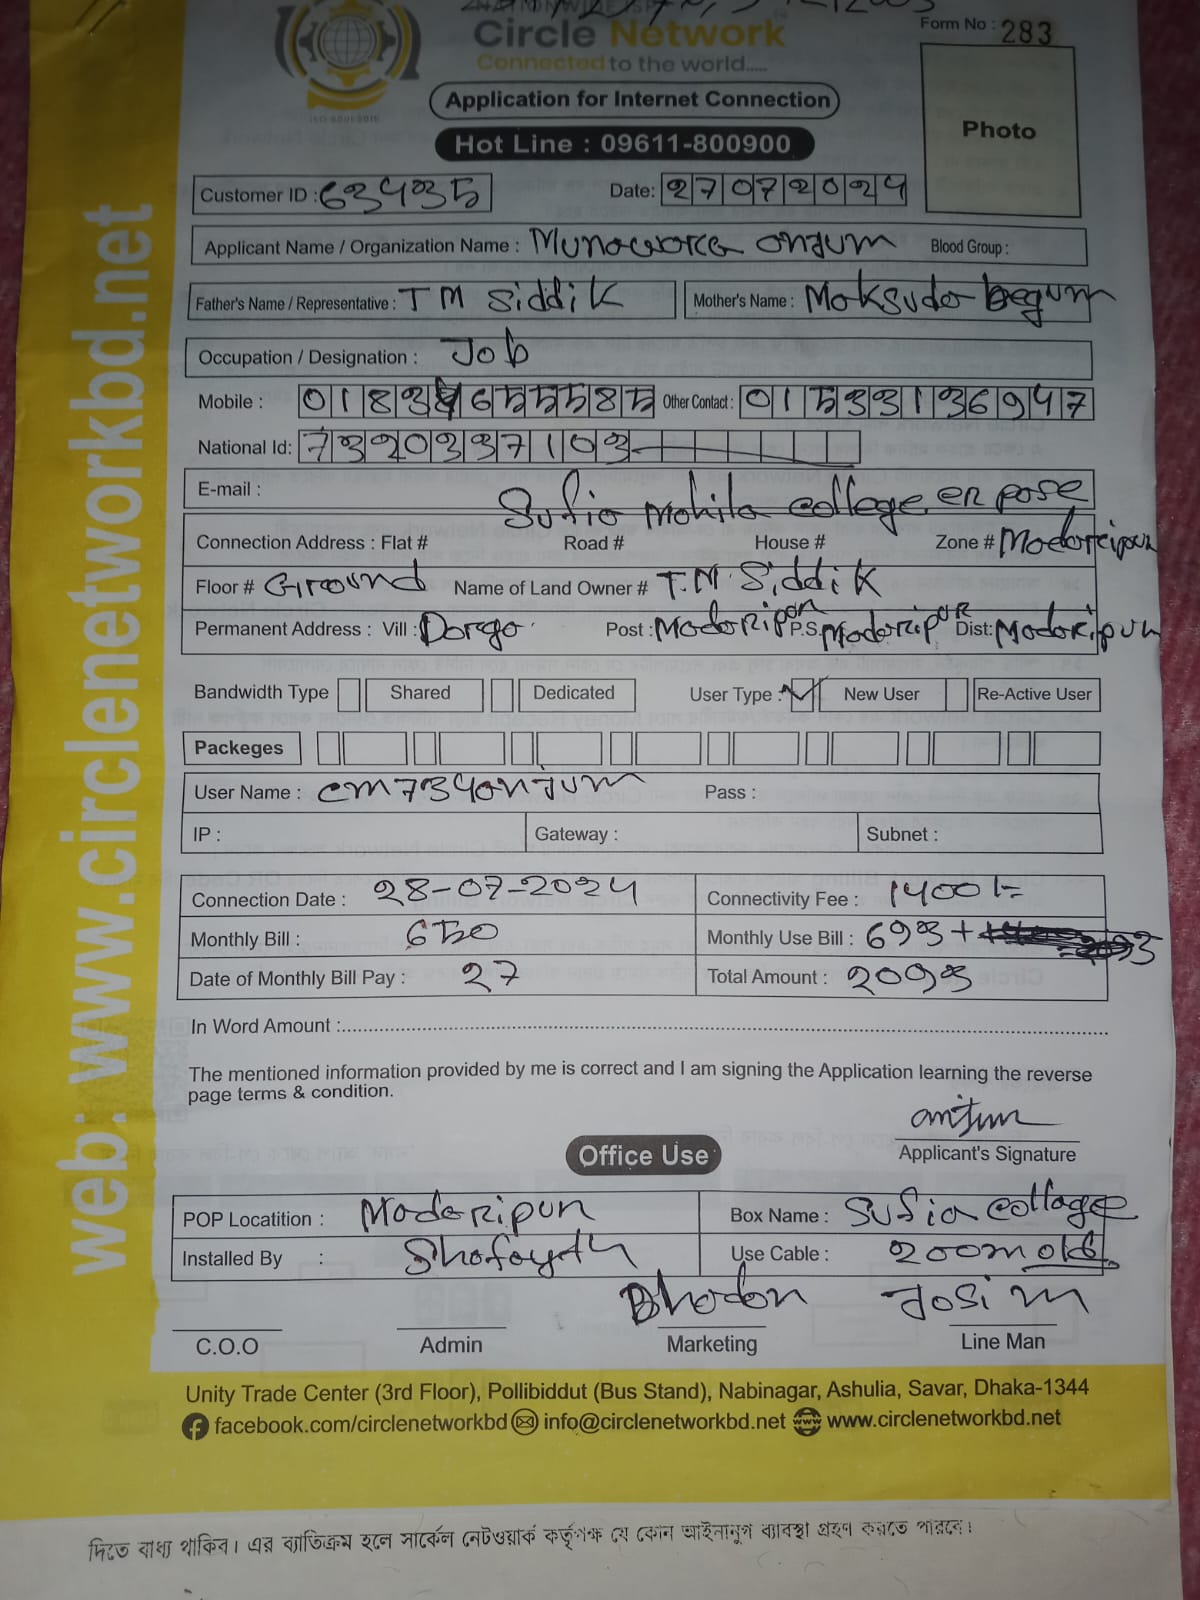 NATIONWIDE ISP
Circle Network
Connected to the world.....
Form No : 283
Application for Internet Connection
Photo
Hot Line : 09611-800900
Customer ID : 63435 Date: 27072024
Applicant Name / Organization Name : Munowora onjum Blood Group :
Father's Name / Representative : T M Siddik Mother's Name : Moksuda begum
Occupation / Designation : Job
Mobile : 01834655585 Other Contact : 01533136947
National Id: 7320337103
E-mail :
Sufia Mohila college er pase
Connection Address : Flat # Road # House # Zone # Madaripur
Floor # Ground Name of Land Owner # T.M. Siddik
Permanent Address : Vill : Dorga Post : Madaripur P.S. Madaripur Dist: Madaripur
Bandwidth Type Shared Dedicated User Type : New User Re-Active User
Packeges
User Name : cm734onjum Pass :
IP : Gateway : Subnet :
Connection Date : 28-07-2024 Connectivity Fee : 1400/=
Monthly Bill : 650 Monthly Use Bill : 693 +
Date of Monthly Bill Pay : 27 Total Amount : 2093
In Word Amount :
The mentioned information provided by me is correct and I am signing the Application learning the reverse
page terms & condition.
anjum
Applicant's Signature
Office Use
POP Locatition : Madaripur Box Name : Sufia collage
Installed By : Use Cable : 200m old
Josim
C.O.O Admin Marketing Line Man
Unity Trade Center (3rd Floor), Pollibiddut (Bus Stand), Nabinagar, Ashulia, Savar, Dhaka-1344
facebook.com/circlenetworkbd info@circlenetworkbd.net www.circlenetworkbd.net
দিতে বাধ্য থাকিব। এর ব্যতিক্রম হলে সার্কেল নেটওয়ার্ক কর্তৃপক্ষ যে কোন আইনানুগ ব্যবস্থা গ্রহণ করতে পারবে।
web: www.circlenetworkbd.net